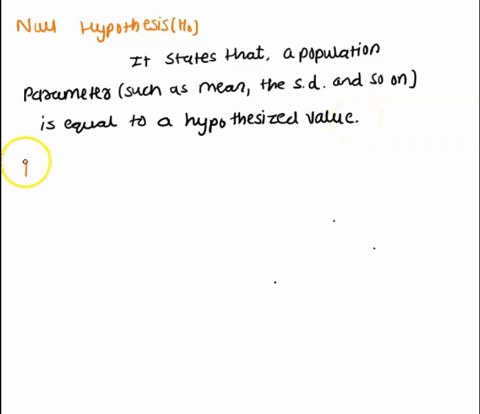 Null Hypothesis(H₀)
It states that, a population
parameter (such as mean, the s.d. and so on]
is equal to a hypothesized value.